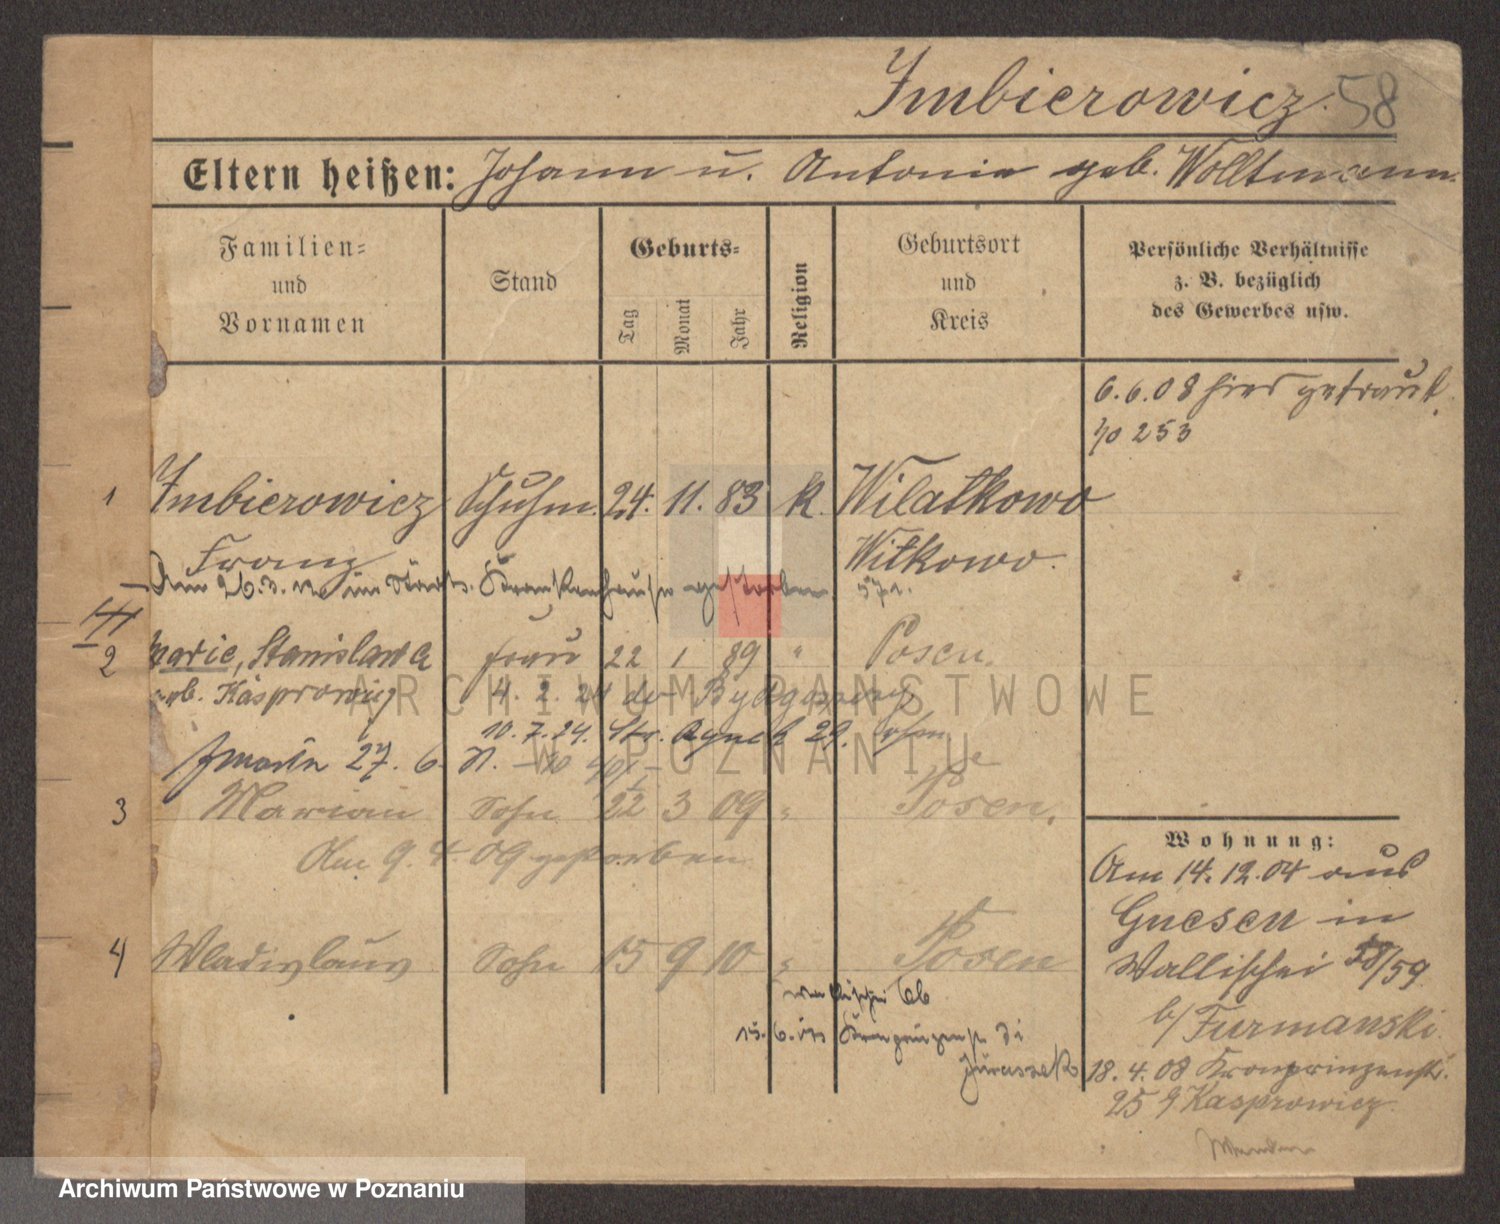 Imbierowicz. 58
Eltern heißen: Johann u. Antonie geb. Wolltmann.
Familien-
und
Vornamen
Stand
Geburts-
Tag
Monat
Jahr
Religion
Geburtsort
und
Kreis
Persönliche Verhältnisse
z. B. bezüglich
des Gewerbes usw.
6.6.08 hier getraut
No 253
1 Imbierowicz Schuhm. 24. 11. 83 k. Wilatkowo
Franz Witkowo.
Am 26.3. im Krankenhause gestorben
2 Marie, Stanislawa Frau 22 1 89 " Posen.
geb. Kasprowicz 4. 2. 24 Bydgoszcz
10. 7. 24. Str. Rynek 29.
27. 6.
3 Marian Sohn 22 3 09 " Posen.
Am 9. 4. 09 gestorben
4 Wladislaus Sohn 15 9 10 " Posen
15. 6.
Jurassek
Wohnung:
Am 14. 12. 04 aus
Gnesen in
Wallischei 58/59
b/ Furmanski.
18. 4. 08 Kronprinzenstr.
25 Kasprowicz
ARCHIWUM PAŃSTWOWE
W POZNANIU
Archiwum Państwowe w Poznaniu